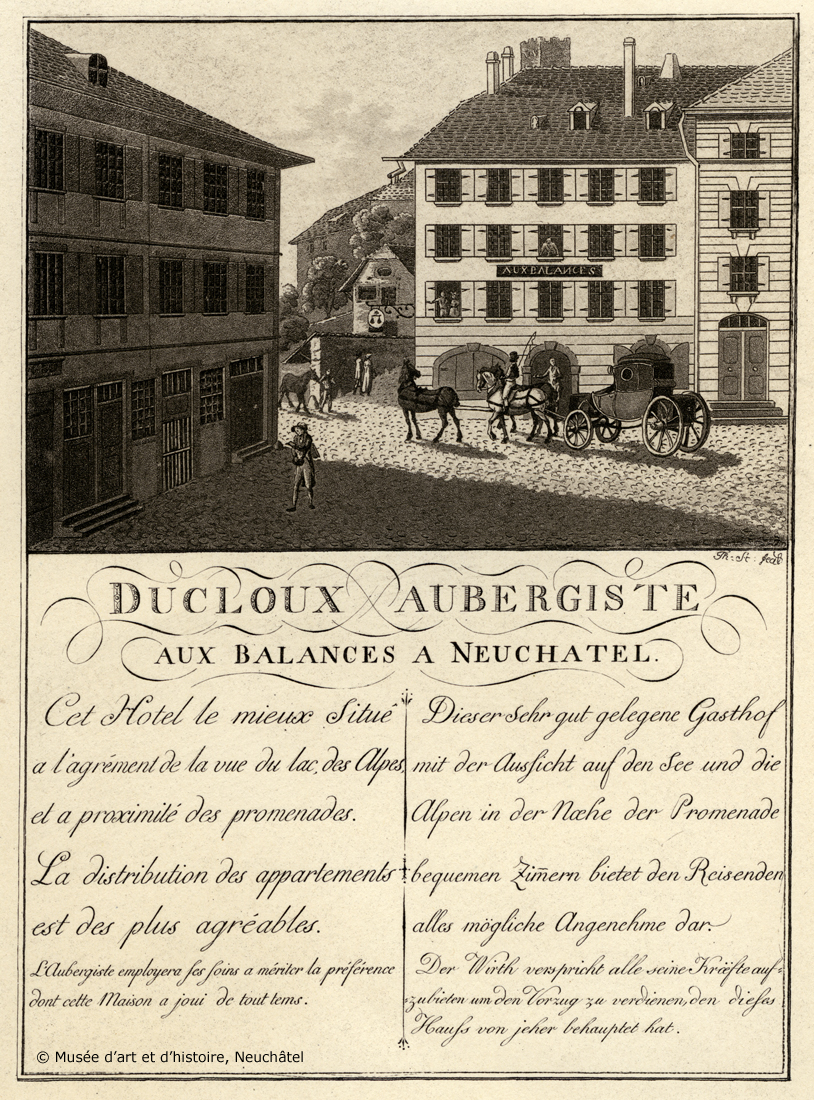 AUX BALANCES
Th: St. fecit
DUCLOUX AUBERGISTE
AUX BALANCES A NEUCHATEL.
Cet Hotel le mieux Situé
a l'agrément de la vue du lac, des Alpes,
et a proximité des promenades.
La distribution des appartements
est des plus agréables.
L'Aubergiste employera ses soins a mériter la préférence
dont cette Maison a joui de tout tems.
Dieser sehr gut gelegene Gasthof
mit der Aussicht auf den See und die
Alpen in der Næhe der Promenade
bequemen Zim̅ern bietet den Reisenden
alles mögliche Angenehme dar.
Der Wirth verspricht alle seine Kræfte auf=
zubieten um den Vorzug zu verdienen, den dieses
Hauss von jeher behauptet hat.
© Musée d'art et d'histoire, Neuchâtel